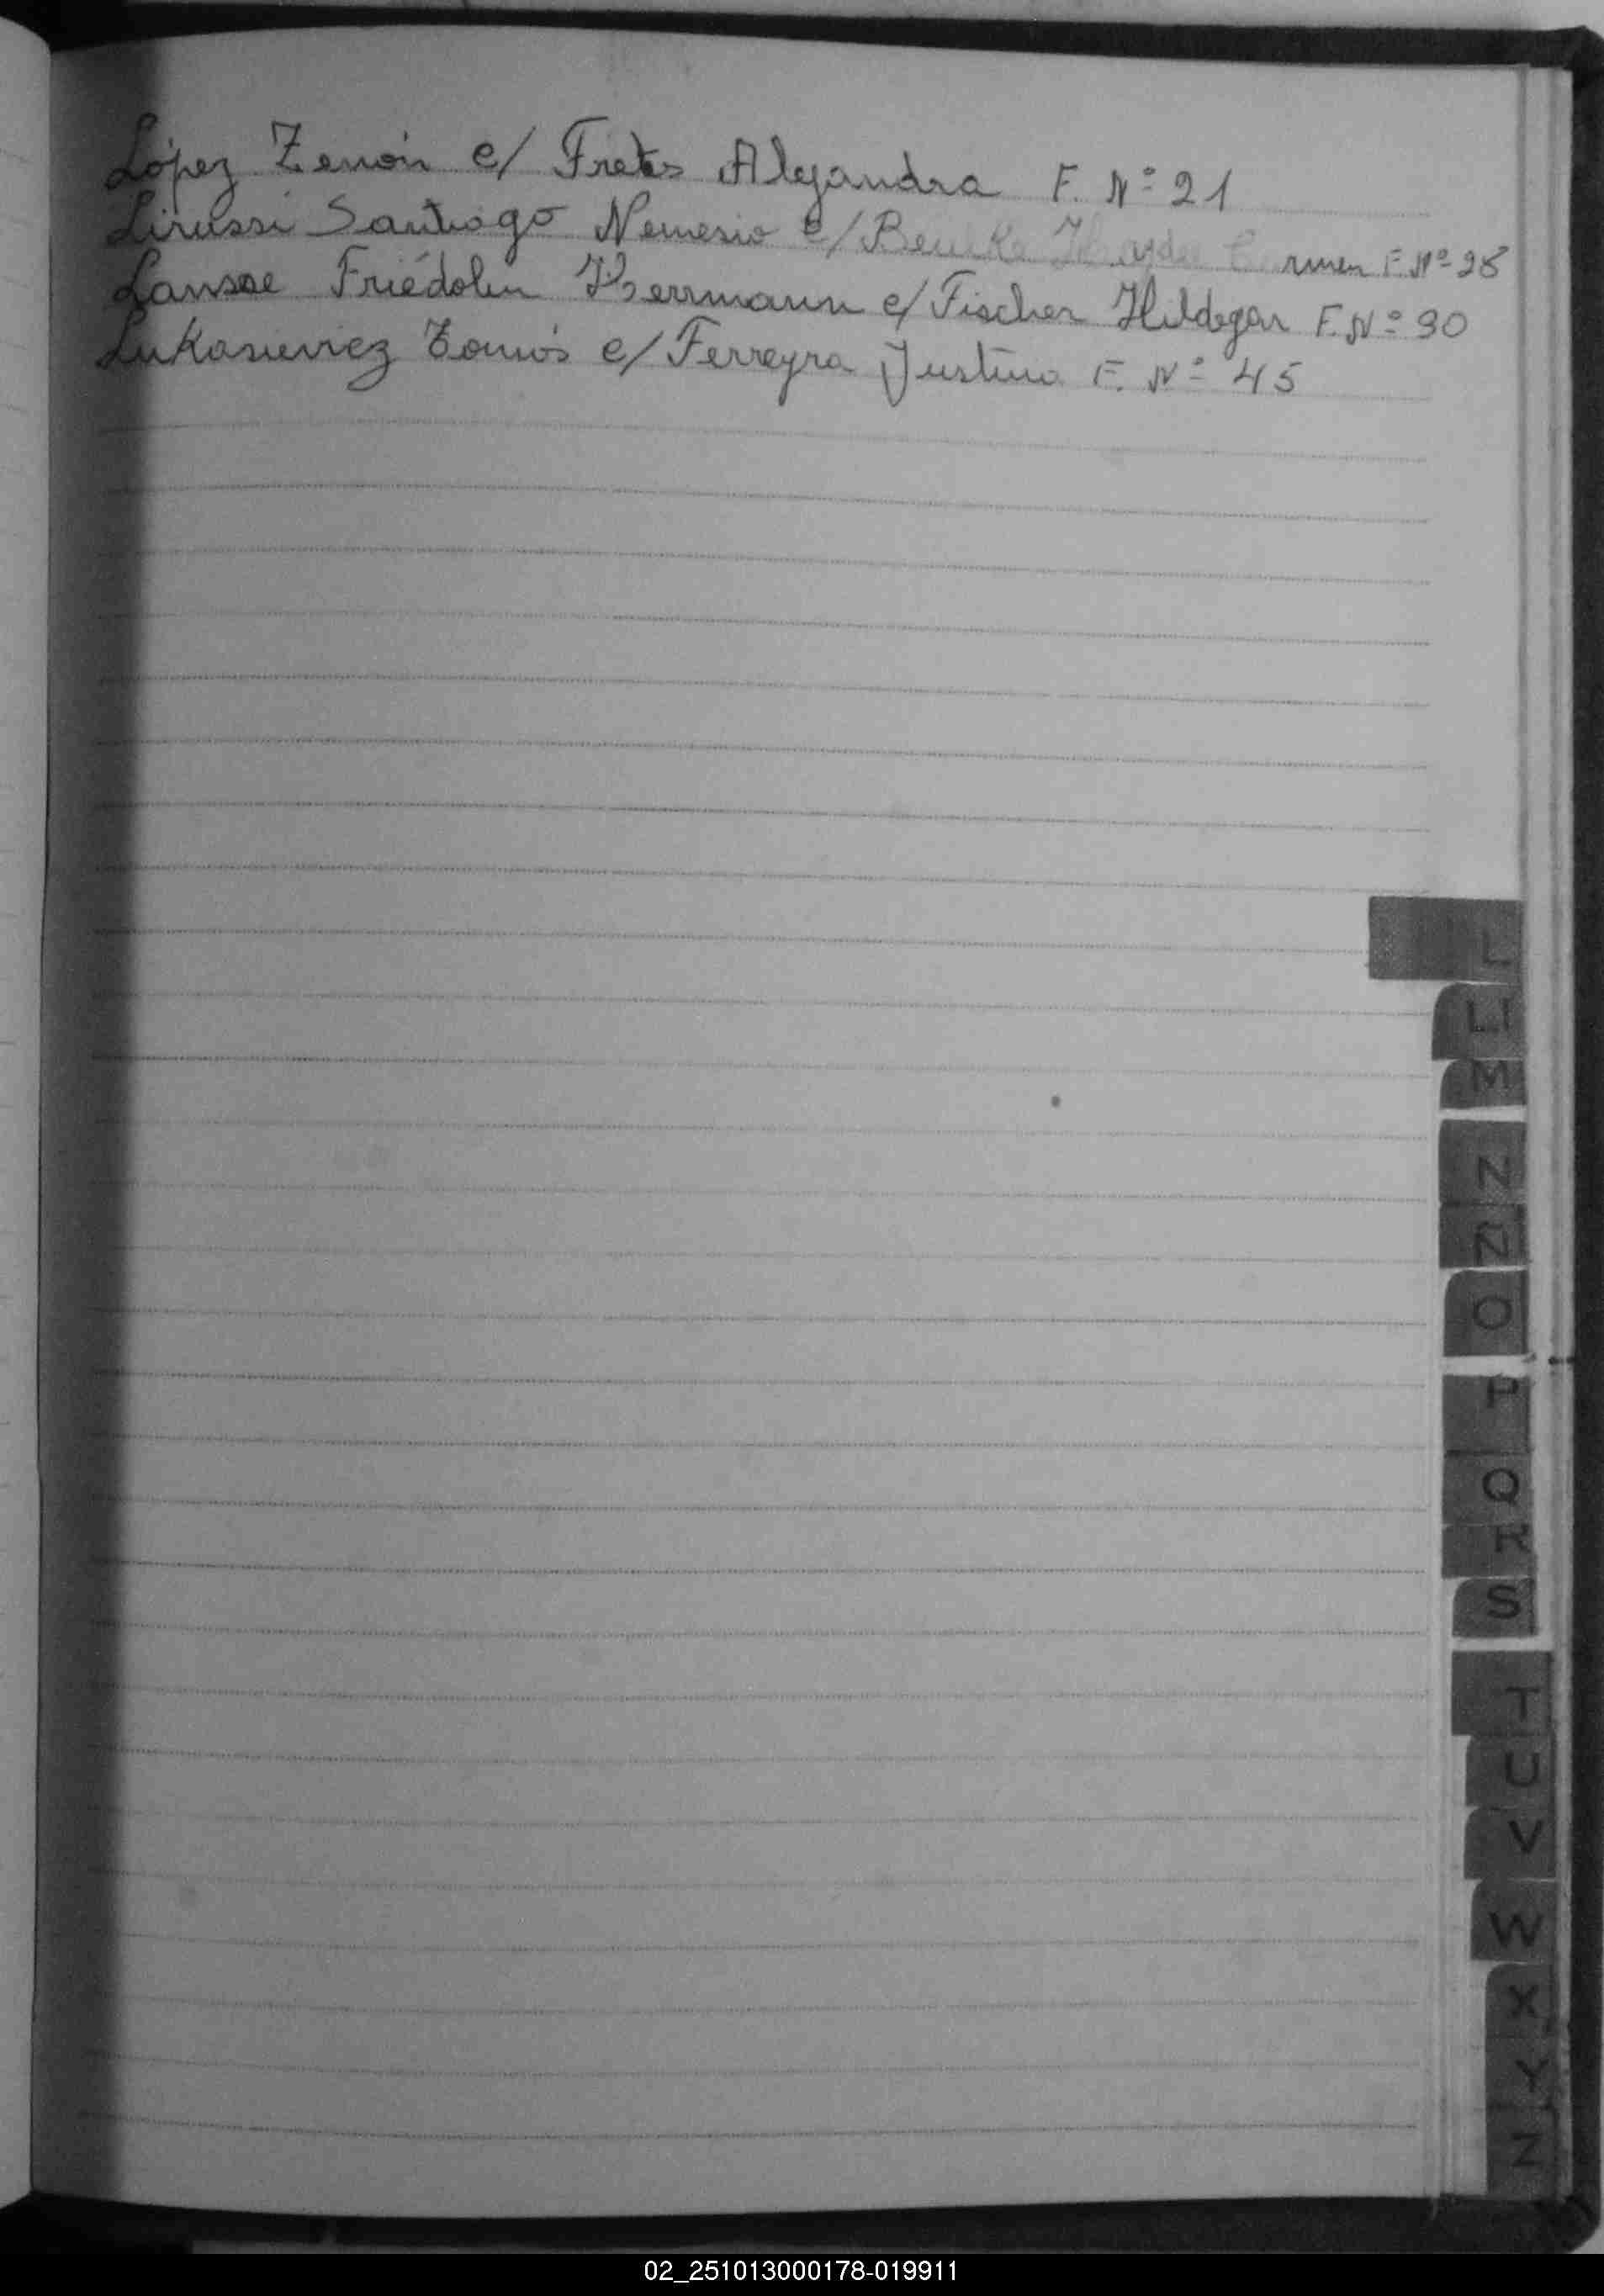 López Zenón c/ Fretes Alejandra F. Nº 21
Lirussi Santiago Nemesio c/ rmen F. Nº 28
Lansse Friédolin Herrmann c/ Fischer Hildegar F. Nº 30
Lukasieviez Tomás c/ Ferreyra Justina F. Nº 45
L
LI
M
N
Ñ
O
P
Q
R
S
T
U
V
W
X
Y
Z
02_251013000178-019911